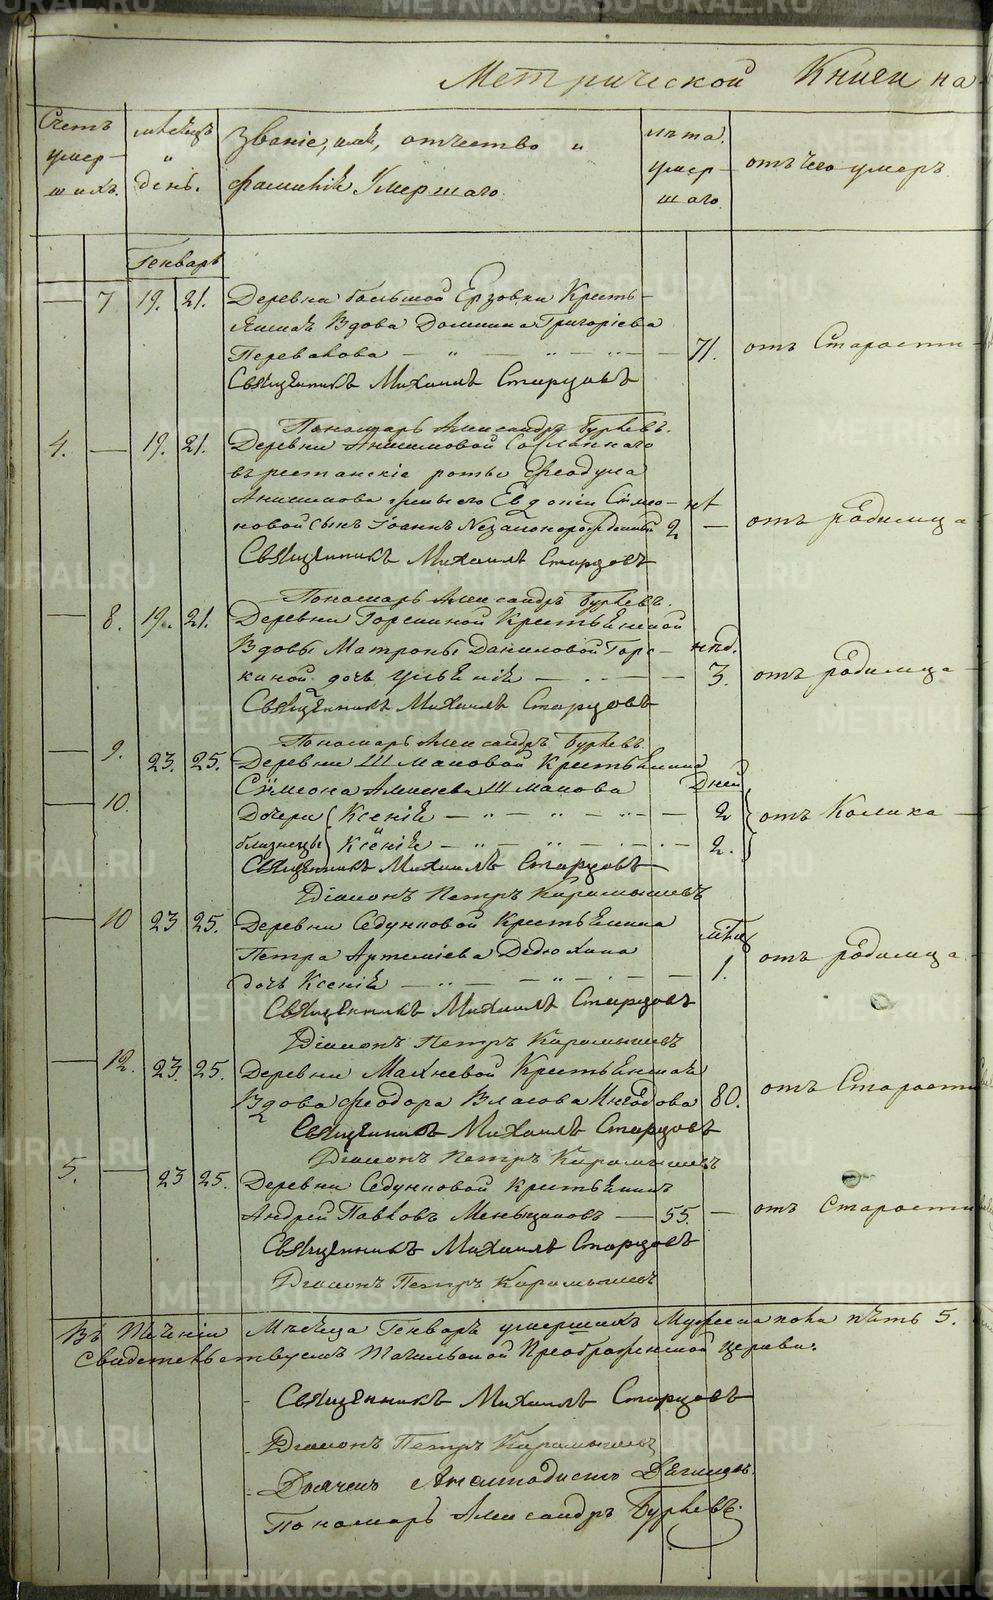 METRIKI.GASO-URAL.RU
Метрической Книги на
Счетъ умер- шихъ.
мѣсяцъ и день.
Званіе, имя, отчество и фамилія Умершаго.
лѣта умер- шаго
отъ чего умеръ
Генварь
7 19. 21. Деревни большой Ерзовки Кресть-
янская Вдова Домнина Григоріева
71. отъ Старости
Священникъ Михаилъ Старцовъ
Пономарь Александръ
4. 19. 21. Деревни Анисимовой
роты Ѳеодула
Анисимова жены его Евдокіи Сѵмео-
новой сынъ Іоаннъ Незаконорожденный 2 отъ родимца
Священникъ Михаилъ Старцовъ
Пономарь Александръ
8. 19. 21. Деревни Горскиной Крестьянской
Вдовы Матроны Даниловой Горс- нед.
киной дочь 3. отъ родимца
Священникъ Михаилъ Старцовъ
Пономарь Александръ
9. 23. 25. Деревни Шмаковой Крестьянина
10. Сѵмеона Шмакова Дней
Дочери Ксенія 2 отъ Колика
близнецы Ксенія 2.
Священникъ Михаилъ Старцовъ
Діаконъ Петръ Карамышевъ
10 23 25. Деревни Седунковой Крестьянина
Петра Артеміева Дедюхина
дочь Ксенія 1. отъ родимца
Священникъ Михаилъ Старцовъ
Діаконъ Петръ Карамышевъ
12. 23. 25. Деревни Махневой Крестьянская
Вдова Ѳеодора Власова 80. отъ Старости
Священникъ Михаилъ Старцовъ
Діаконъ Петръ Карамышевъ
5. 23 25. Деревни Седунковой Крестьянинъ
Андрей Павловъ Меньщиковъ 55. отъ Старости
Священникъ Михаилъ Старцовъ
Діаконъ Петръ Карамышевъ
Въ теченіи Мѣсяца Генваря умершихъ Мужеска пола пѣть 5.
Свидетельствуемъ Преображенской церкви.
Священникъ Михаилъ Старцовъ
Діаконъ Петръ Карамышевъ
Дьячекъ
Пономарь Александръ